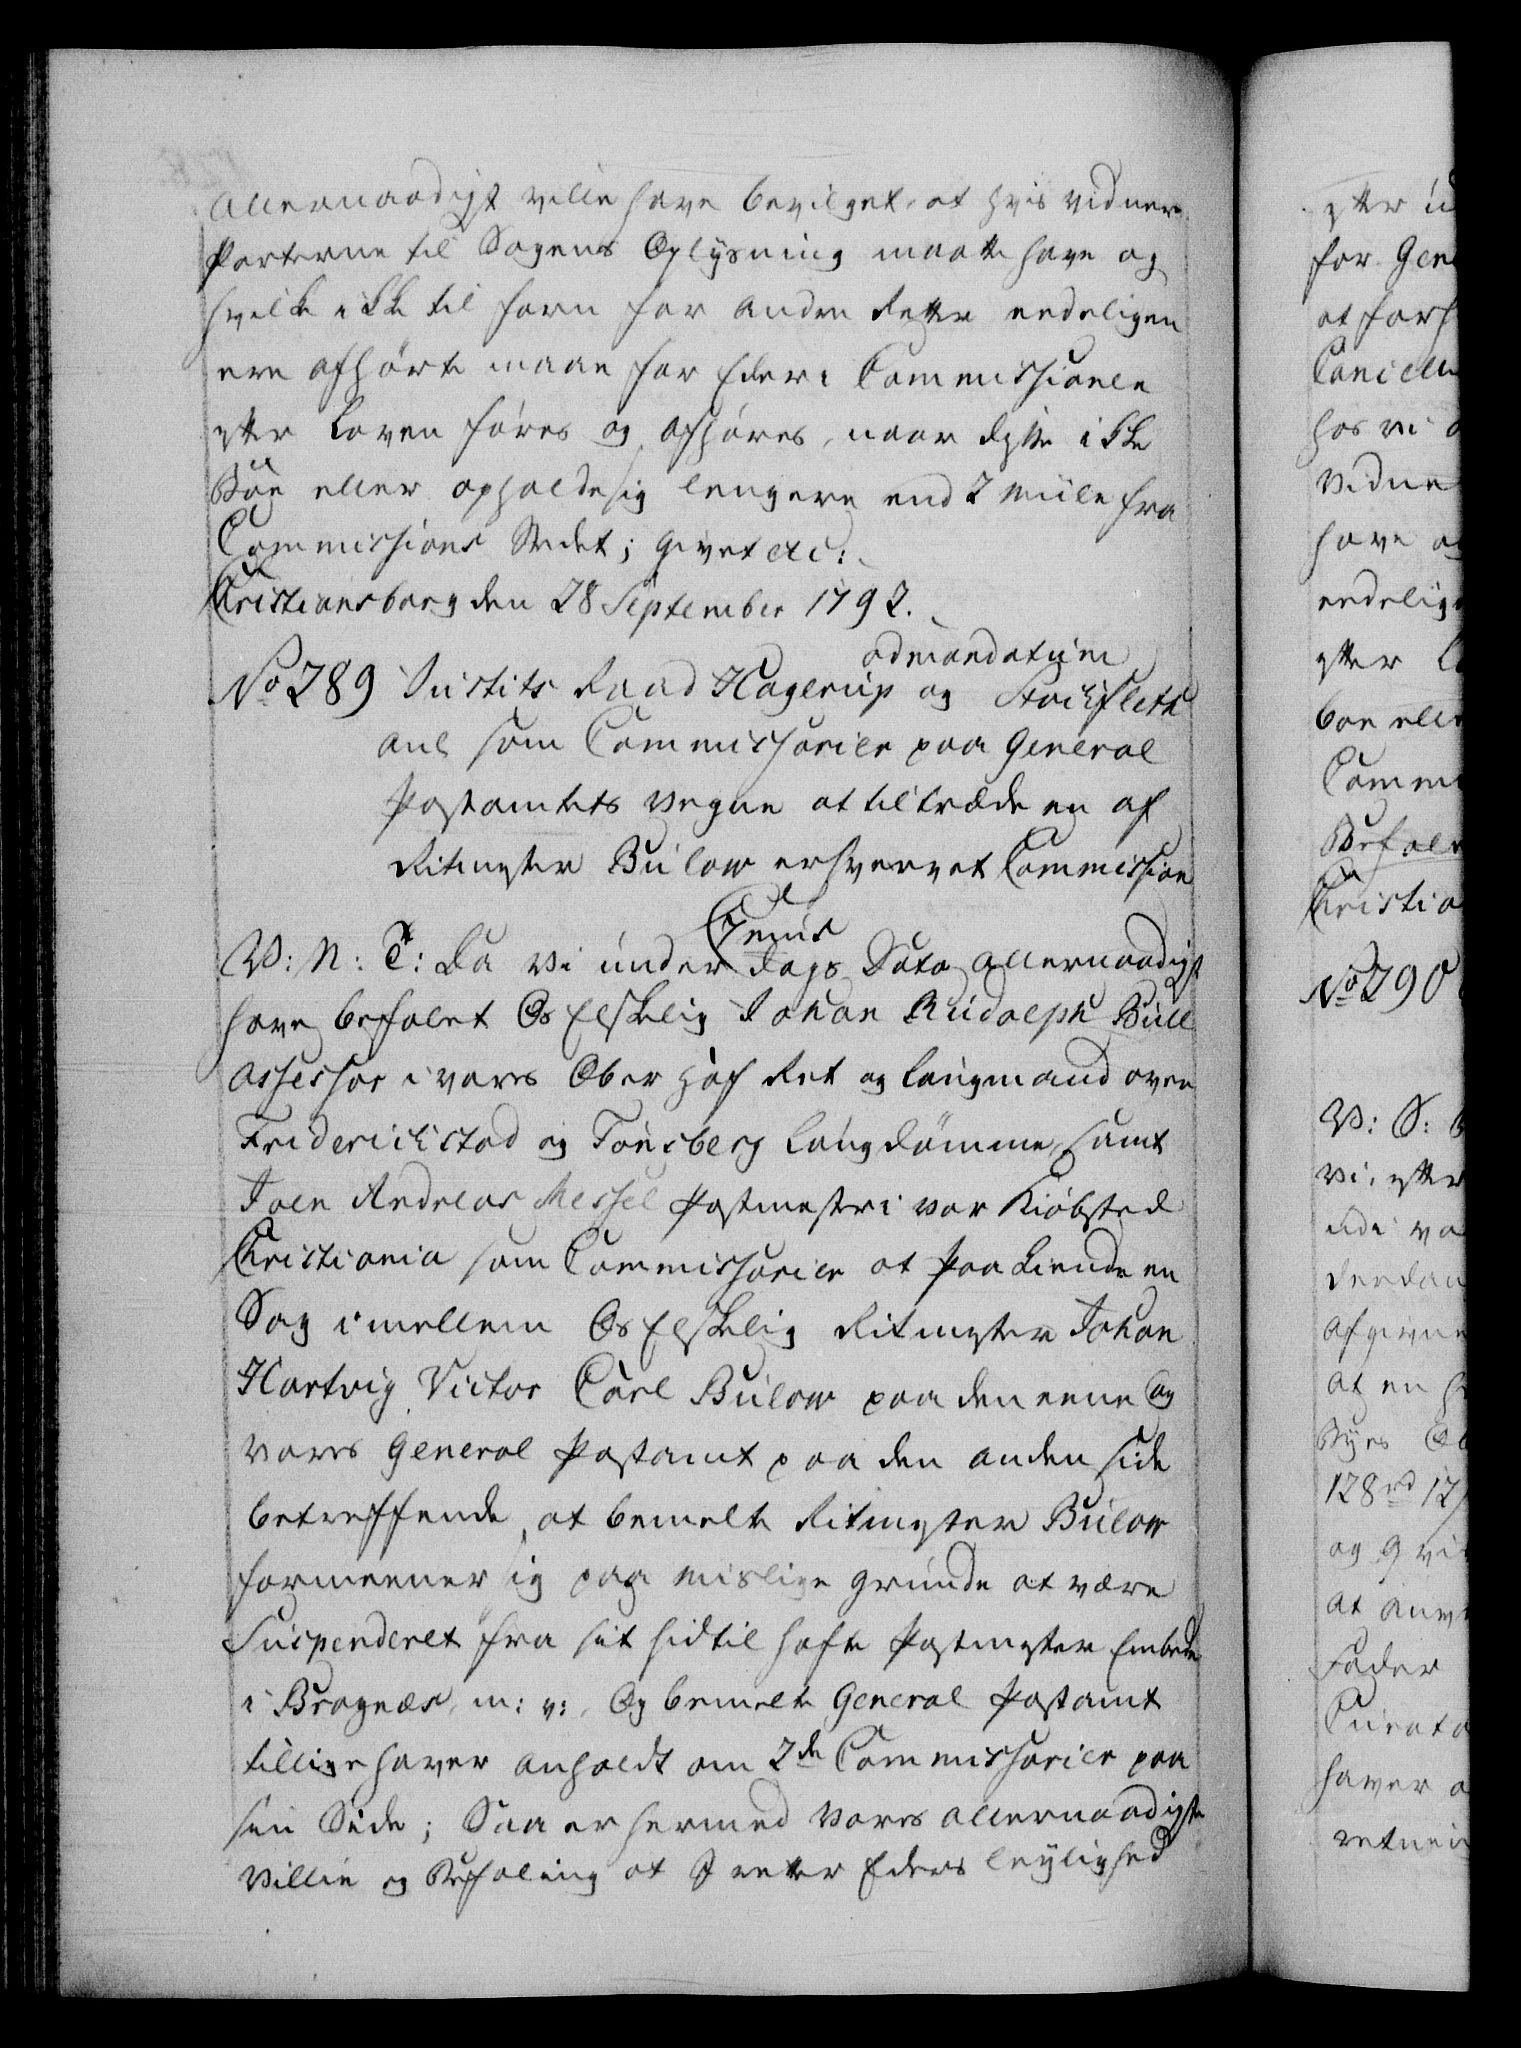 Allernaadigst ville have bevilget, at hvis vidner
Parterne til Sagens Oplysning maatte have og
hvilke ikke til forn for andre Retter eedeligen
ere afhørte maae for Eder i Commissionen
efter Loven føres og afhøres, naar disse ikke
Boe eller opholde sig lengere end 2 Miile fra
Commissions Stedet; Givet etc:
Christiansborg den 28 September 1792.
ad mandatum
No 289 Justits Raad Hagerup og Stockfleth
anl som Commissarier paa General
Postamtets vegne at tiltræde en af
Ritmester Bülow erhvervet Commission
Genus
V: N: T: Da Vi under dags Dato allernaadigst
have befalet Os Elskelig Johan Rudolph Bull
Assessor i vores Ober Hof Ret og Laugmand over
Friderichstad og Tønsberg Laugdømme, samt
Joen Andreas Messel Postmester i vor Kiøbsted
Christiania som Commissarier at paa kiende en
Sag imellem Os Elskelig Ritmester Johan
Hartvig Victor Carl Bülow paa den eene og
vores General Postamt paa den anden side
betreffende, at bemelte Ritmester Bülow
formeener sig paa mislige grunde at være
Suspenderet fra sit hidtil hafte Postmester Embede
i Bragnæs, m: v:, Og bemelte General Postamt
tillige haver anholdt om 2de Commissarier paa
sin Side; Saa er hermed Vores allernaadigste
Villie og Befaling at I retter Eders leylighed
efter
for Gen
at forh
Cancelli
hos vi
vidne
have
eedelig
efter
boe elle
Comm
Befale
Christia
No 290
V: S:
vi, efter
udi vo
afgivne
at en
Byes
128rd 12
og 9
at
Fader
Curato
haver